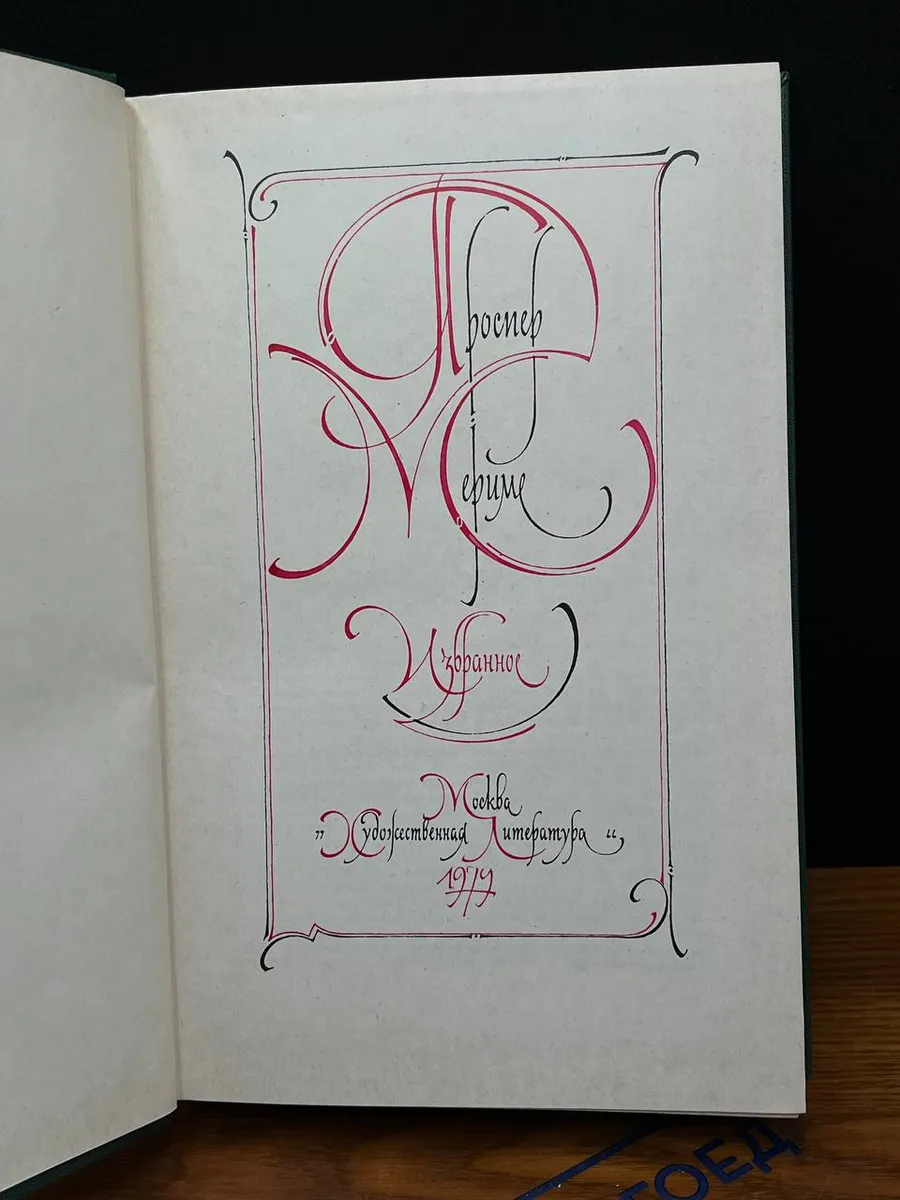 Проспер
Мериме
Избранное
Москва
„Художественная Литература“
1979
ГОЕД